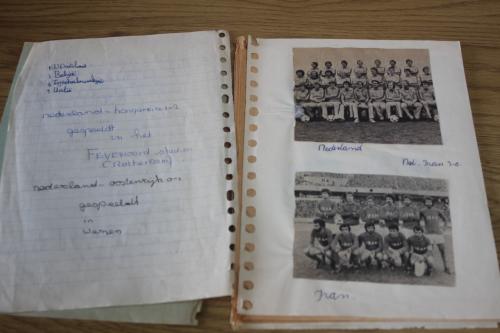 1 W. Duitsland
2 België
3 Tsjechoslowakije
4 Italië
nederland - hongarije
gespeeldt
in het
FEYENOORD stadion
(Rotterdam)
nederland - oostenrijk
gespeeldt
in
Wenen
Nederland
Ned. Iran 3-0
Iran